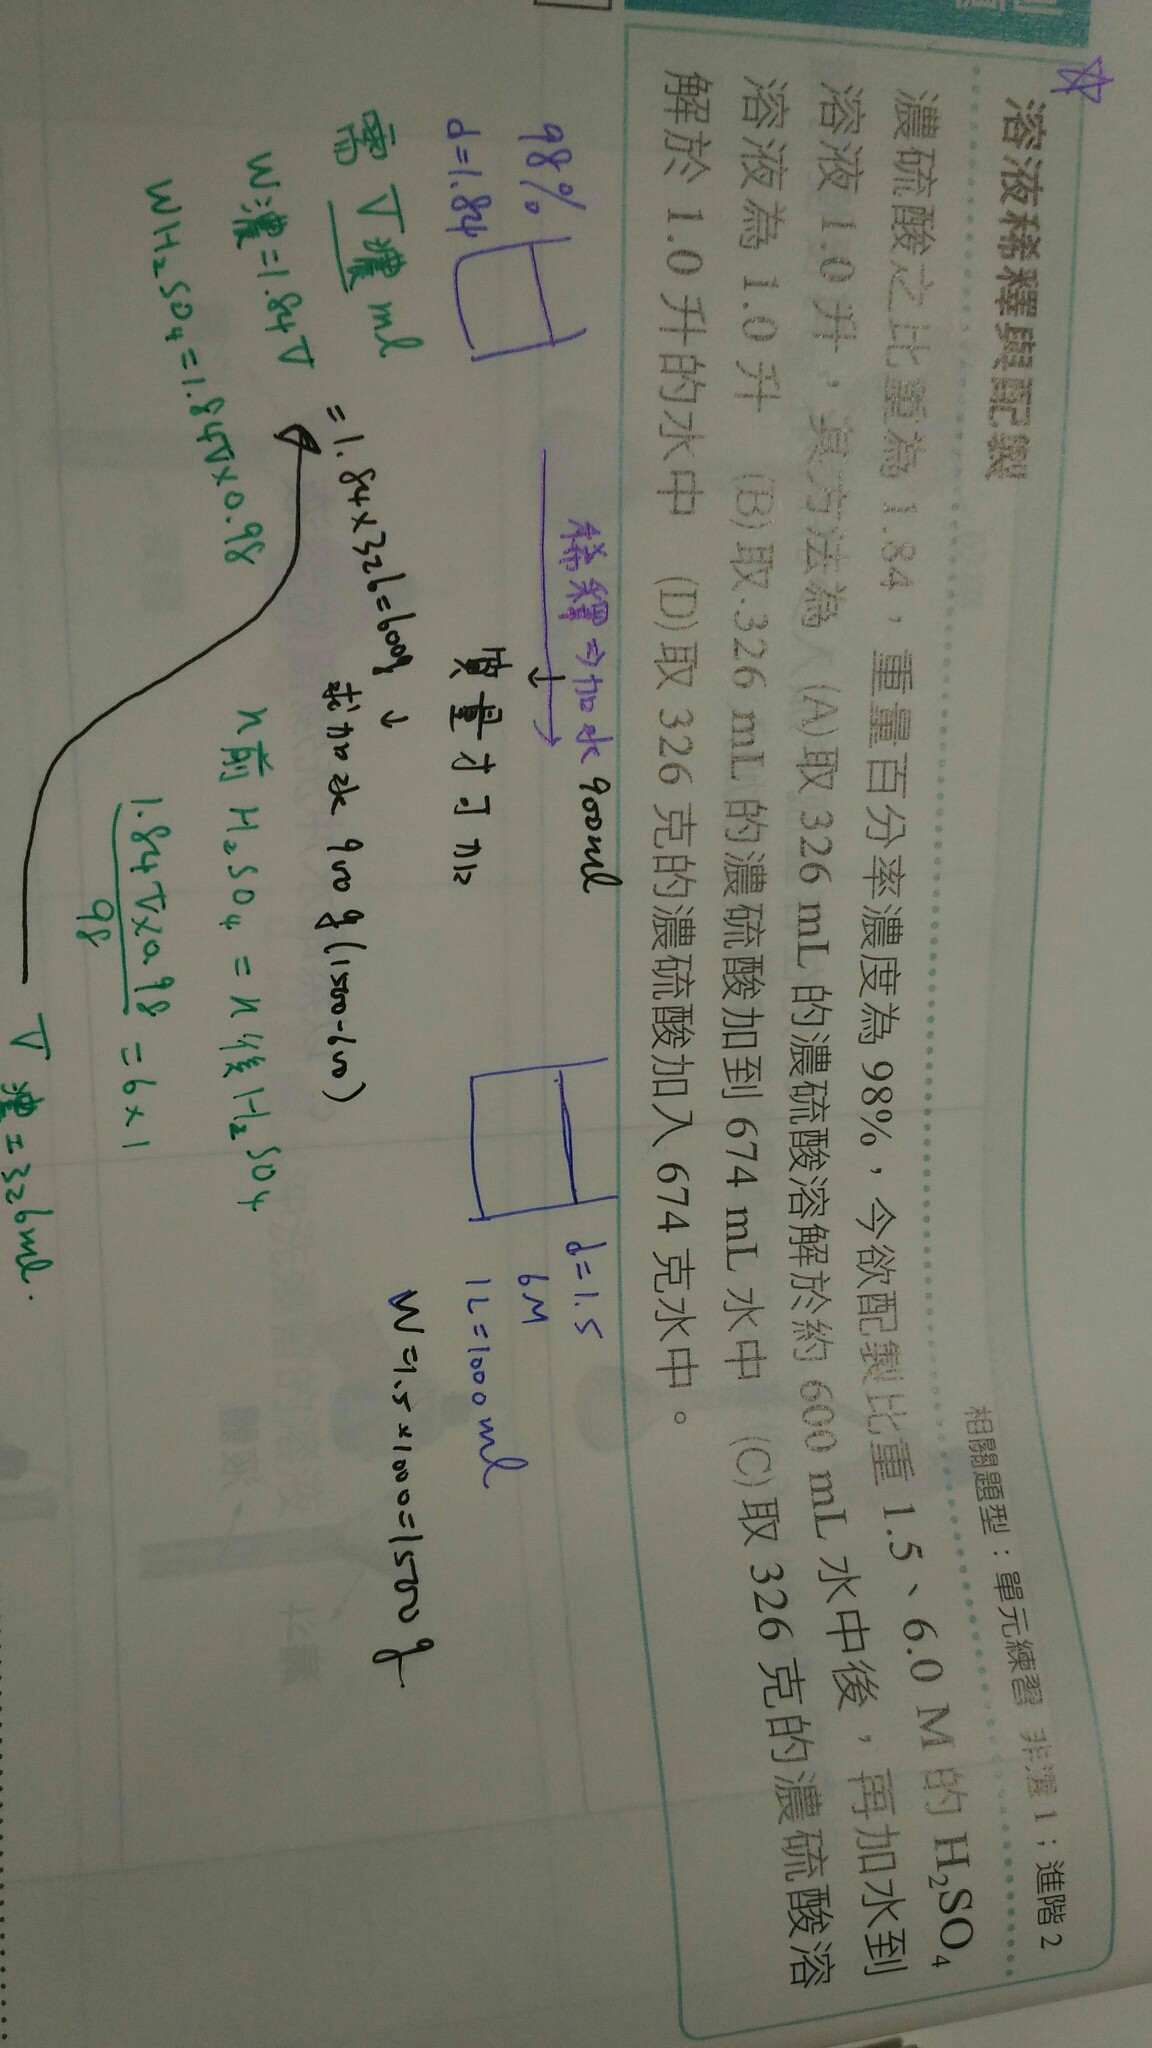 溶液稀釋與配製
相關題型：單元練習 非選 1；進階 2
濃硫酸之比重為 1.84，重量百分率濃度為 98%，今欲配製比重 1.5、6.0 M 的 H₂SO₄
溶液 1.0 升，其方法為 (A)取 326 mL 的濃硫酸溶解於約 600 mL 水中後，再加水到
溶液為 1.0 升 (B)取 326 mL 的濃硫酸加到 674 mL 水中 (C)取 326 克的濃硫酸溶
解於 1.0 升的水中 (D)取 326 克的濃硫酸加入 674 克水中。
98%
d=1.84
稀釋⇒加水 900ml
↓
質量才可加
d=1.5
6M
1L=1000ml
W=1.5×1000=1500g
需 V濃 ml
W濃=1.84V
=1.84×326=600g
↓
求加水 900g(1500-600)
WH₂SO₄=1.84V×0.98
n前 H₂SO₄ = n後 H₂SO₄
1.84V×0.98
98
=6×1
V濃=326ml.